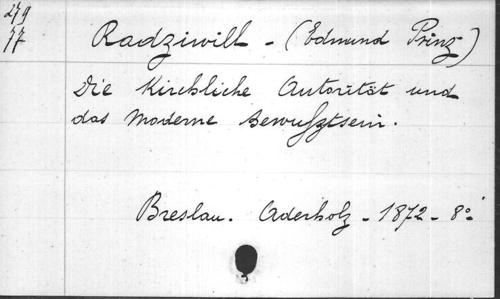 279
77
Radziwill - (Edmund Prinz)
Die Kirchliche Autorität und
das Moderne Bewußtsein.
Breslau. Aderholz - 1872 - 8º